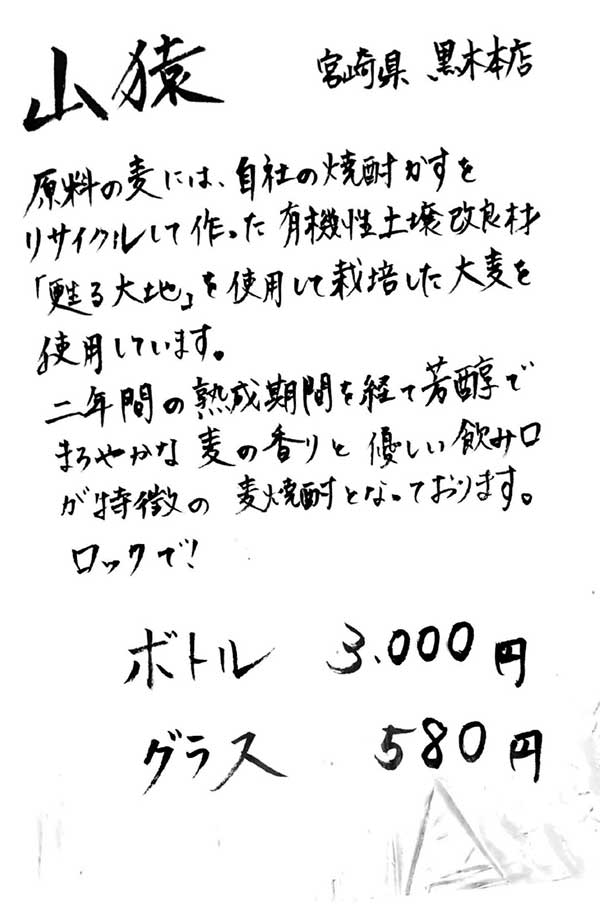 山猿 宮崎県 黒木本店
原料の麦には、自社の焼酎かすを
リサイクルして作った有機性土壌改良材
「甦る大地」を使用して栽培した大麦を
使用しています。
二年間の熟成期間を経て芳醇で
まろやかな麦の香りと優しい飲み口
が特徴の麦焼酎となっております。
ロックで!
ボトル 3.000円
グラス 580円